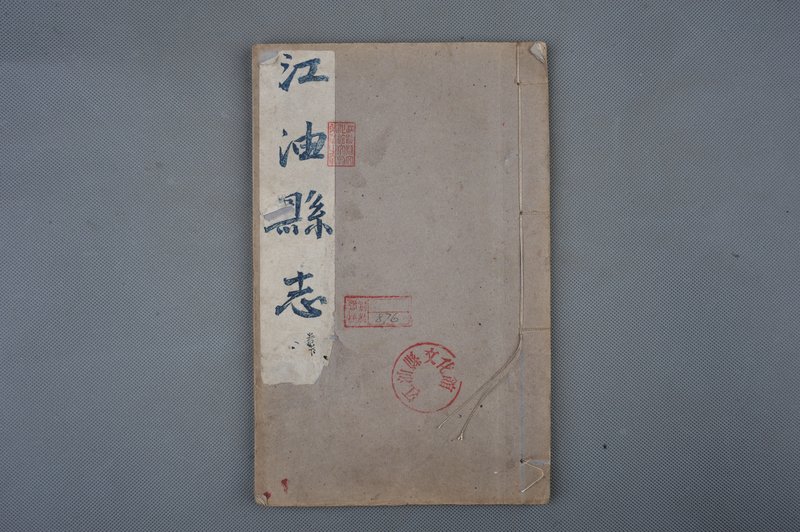 江油縣志
876
江油縣文化館